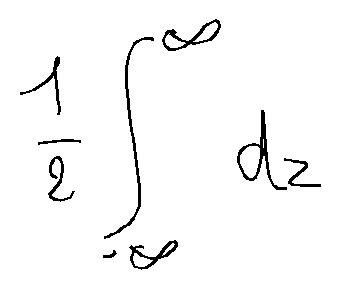 \frac{1}{2} \int_{-\infty}^{\infty} dz